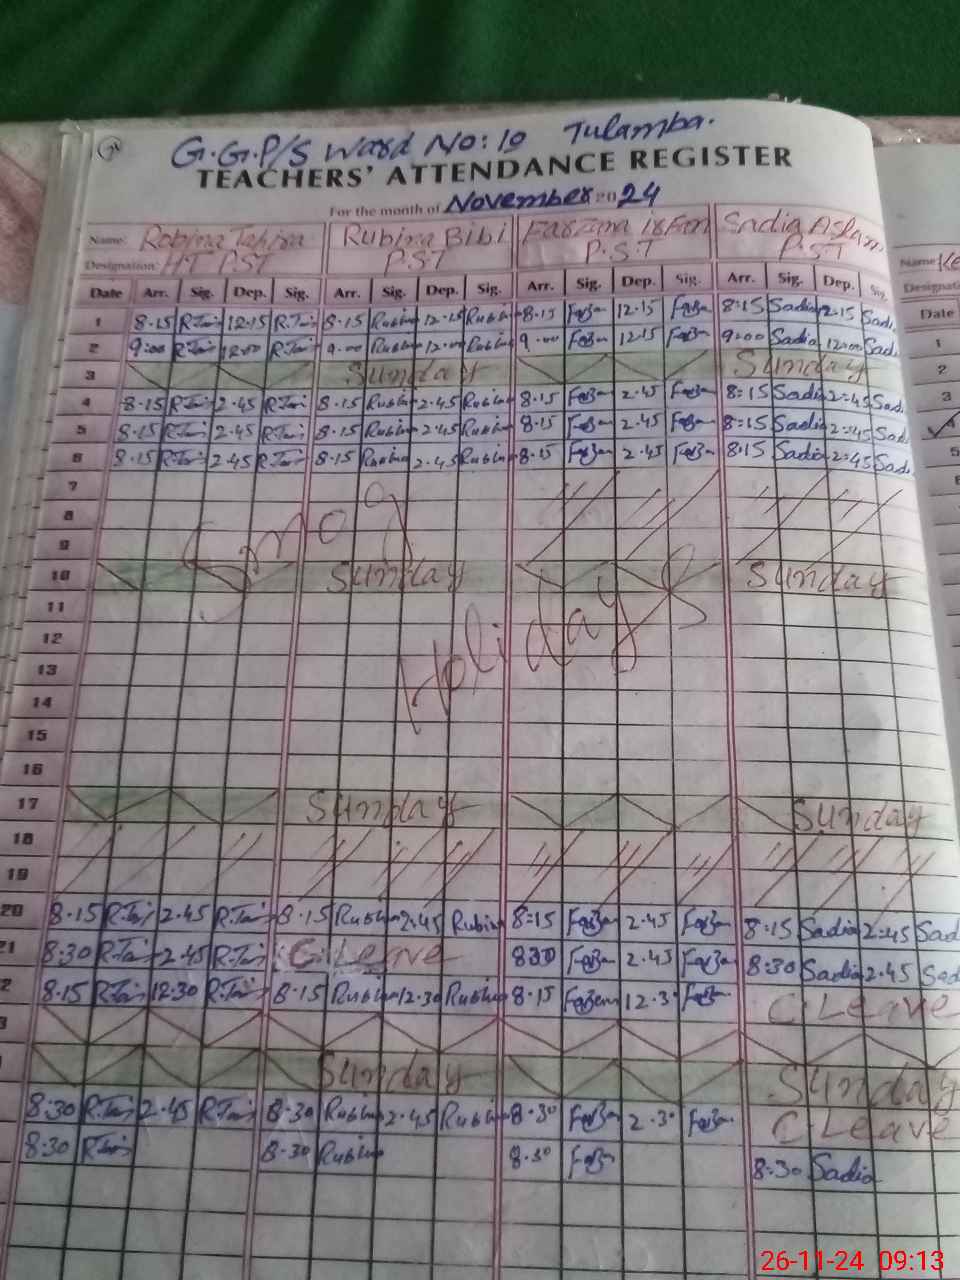 G.G.P/S Ward No: 10 Tulamba.
TEACHERS' ATTENDANCE REGISTER
For the month of November 2024
Name: Robina Tahira Rubina Bibi Farzana Irfan Sadia Aslam
Designation: HT PST P.S.T P.S.T P.S.T
Date Arr. Sig. Dep. Sig. Arr. Sig. Dep. Sig. Arr. Sig. Dep. Sig. Arr. Sig. Dep. Sig.
1 8.15 R.Tai 12.15 R.Tai 8.15 Rubina 12.15 Rubina 8.15 12.15 8:15 Sadia 12.15 Sadi
2 9:00 R.Tai 12:00 R.Tai 9.00 Rubina 12.00 Rubina 9.00 12.15 9:00 Sadia 12:00 Sadi
3 Sunday Sunday
4 8.15 R.Tai 2.45 R.Tai 8.15 Rubina 2.45 Rubina 8.15 2.45 8:15 Sadia 2:45 Sad
5 8.15 R.Tai 2.45 R.Tai 8.15 Rubina 2.45 Rubina 8.15 2.45 8:15 Sadia 2:45 Sad
6 8.15 R.Tai 2.45 R.Tai 8.15 Rubina 2.45 Rubina 8.15 2.45 8:15 Sadia 2:45 Sad
7
8
Smog
9
10 Sunday Sunday
11
Holidays
12
13
14
15
16
17 Sunday Sunday
18
19
20 8.15 R.Tai 2.45 R.Tai 8.15 Rubina 2.45 Rubina 8:15 2.45 8:15 Sadia 2:45 Sad
21 8:30 R.Tai 2.45 R.Tai C.Leave 830 2.45 8:30 Sadia 2.45 Sad
2 8:15 R.Tai 12:30 R.Tai 8.15 Rubina 12.30 Rubina 8.15 12.30 C.Leave
3
Sunday Sunday
8:30 R.Tai 2.45 R.Tai 8.30 Rubina 2.45 Rubina 8.30 2.30 C.Leave
8:30 R.Tai 8.30 Rubina 8.30 8:30 Sadia
Name
Designat
Date
1
2
3
5
26-11-24 09:13